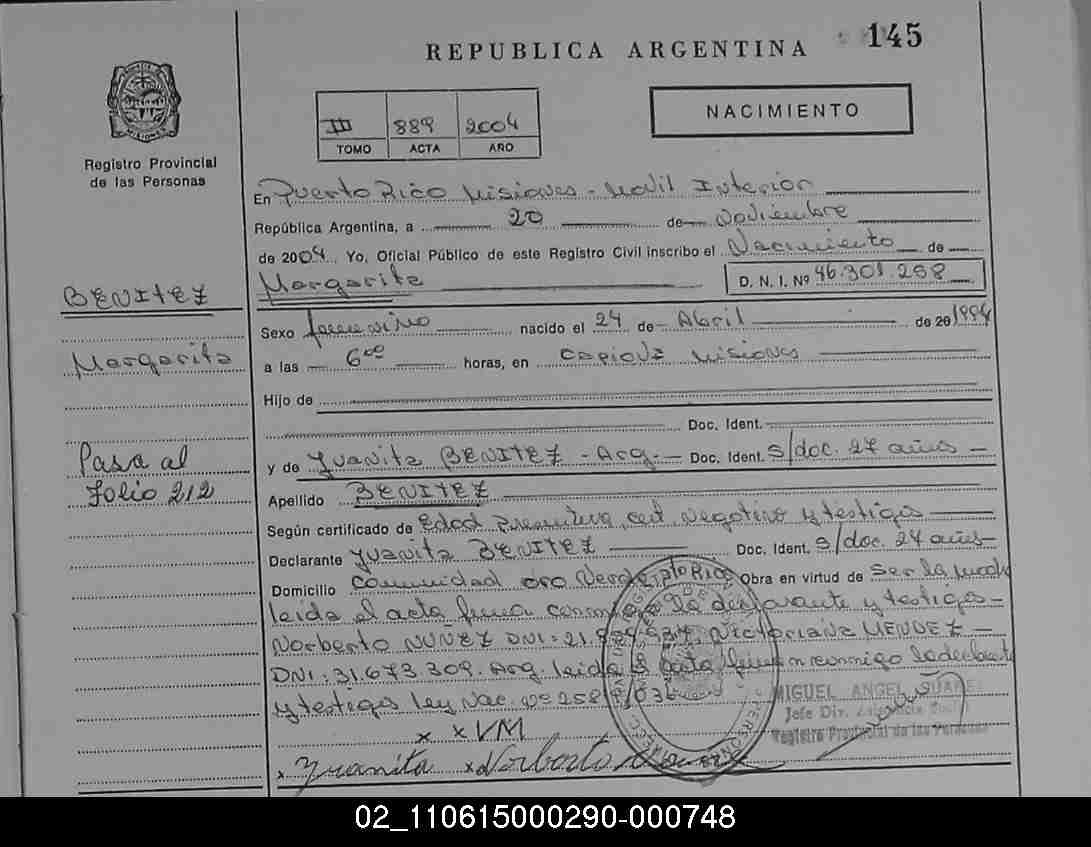 145
REPUBLICA ARGENTINA
NACIMIENTO
III 889 2004
TOMO ACTA AÑO
Registro Provincial
de las Personas
En Puerto Rico Misiones - Movil Interior
República Argentina, a 20 de Noviembre
de 2004 Yo, Oficial Público de este Registro Civil inscribo el Nacimiento de
Margarita D. N. I. Nº 46.301.258
BENITEZ
Margarita
Pasa al
Folio 212
Sexo femenino nacido el 24 de Abril de 20 1994
a las 6 00 horas, en Capiovi Misiones
Hijo de
Doc. Ident.
y de Yuanita BENITEZ - Arg. - Doc. Ident. s/doc. 27 años
Apellido BENITEZ
Según certificado de Edad Presuntiva, cert. Negativo y testigos
Declarante Yuanita BENITEZ Doc. Ident. s/doc. 27 años
Domicilio Comunidad oro Verde Pto Rico Obra en virtud de Ser la madre
leida el acta firma conmigo la declarante y testigos
Norberto NUNEZ DNI: 21. Victoriana MENDEZ
DNI: 31.673.309. Arg. leida el acta firman conmigo la declarante
y testigos ley Nac. Nº 258 /03
MIGUEL ANGEL SUAREZ
Jefe Div.
Registro Provincial de las Personas
x x VM
x Yuanita x Norberto
02_110615000290-000748